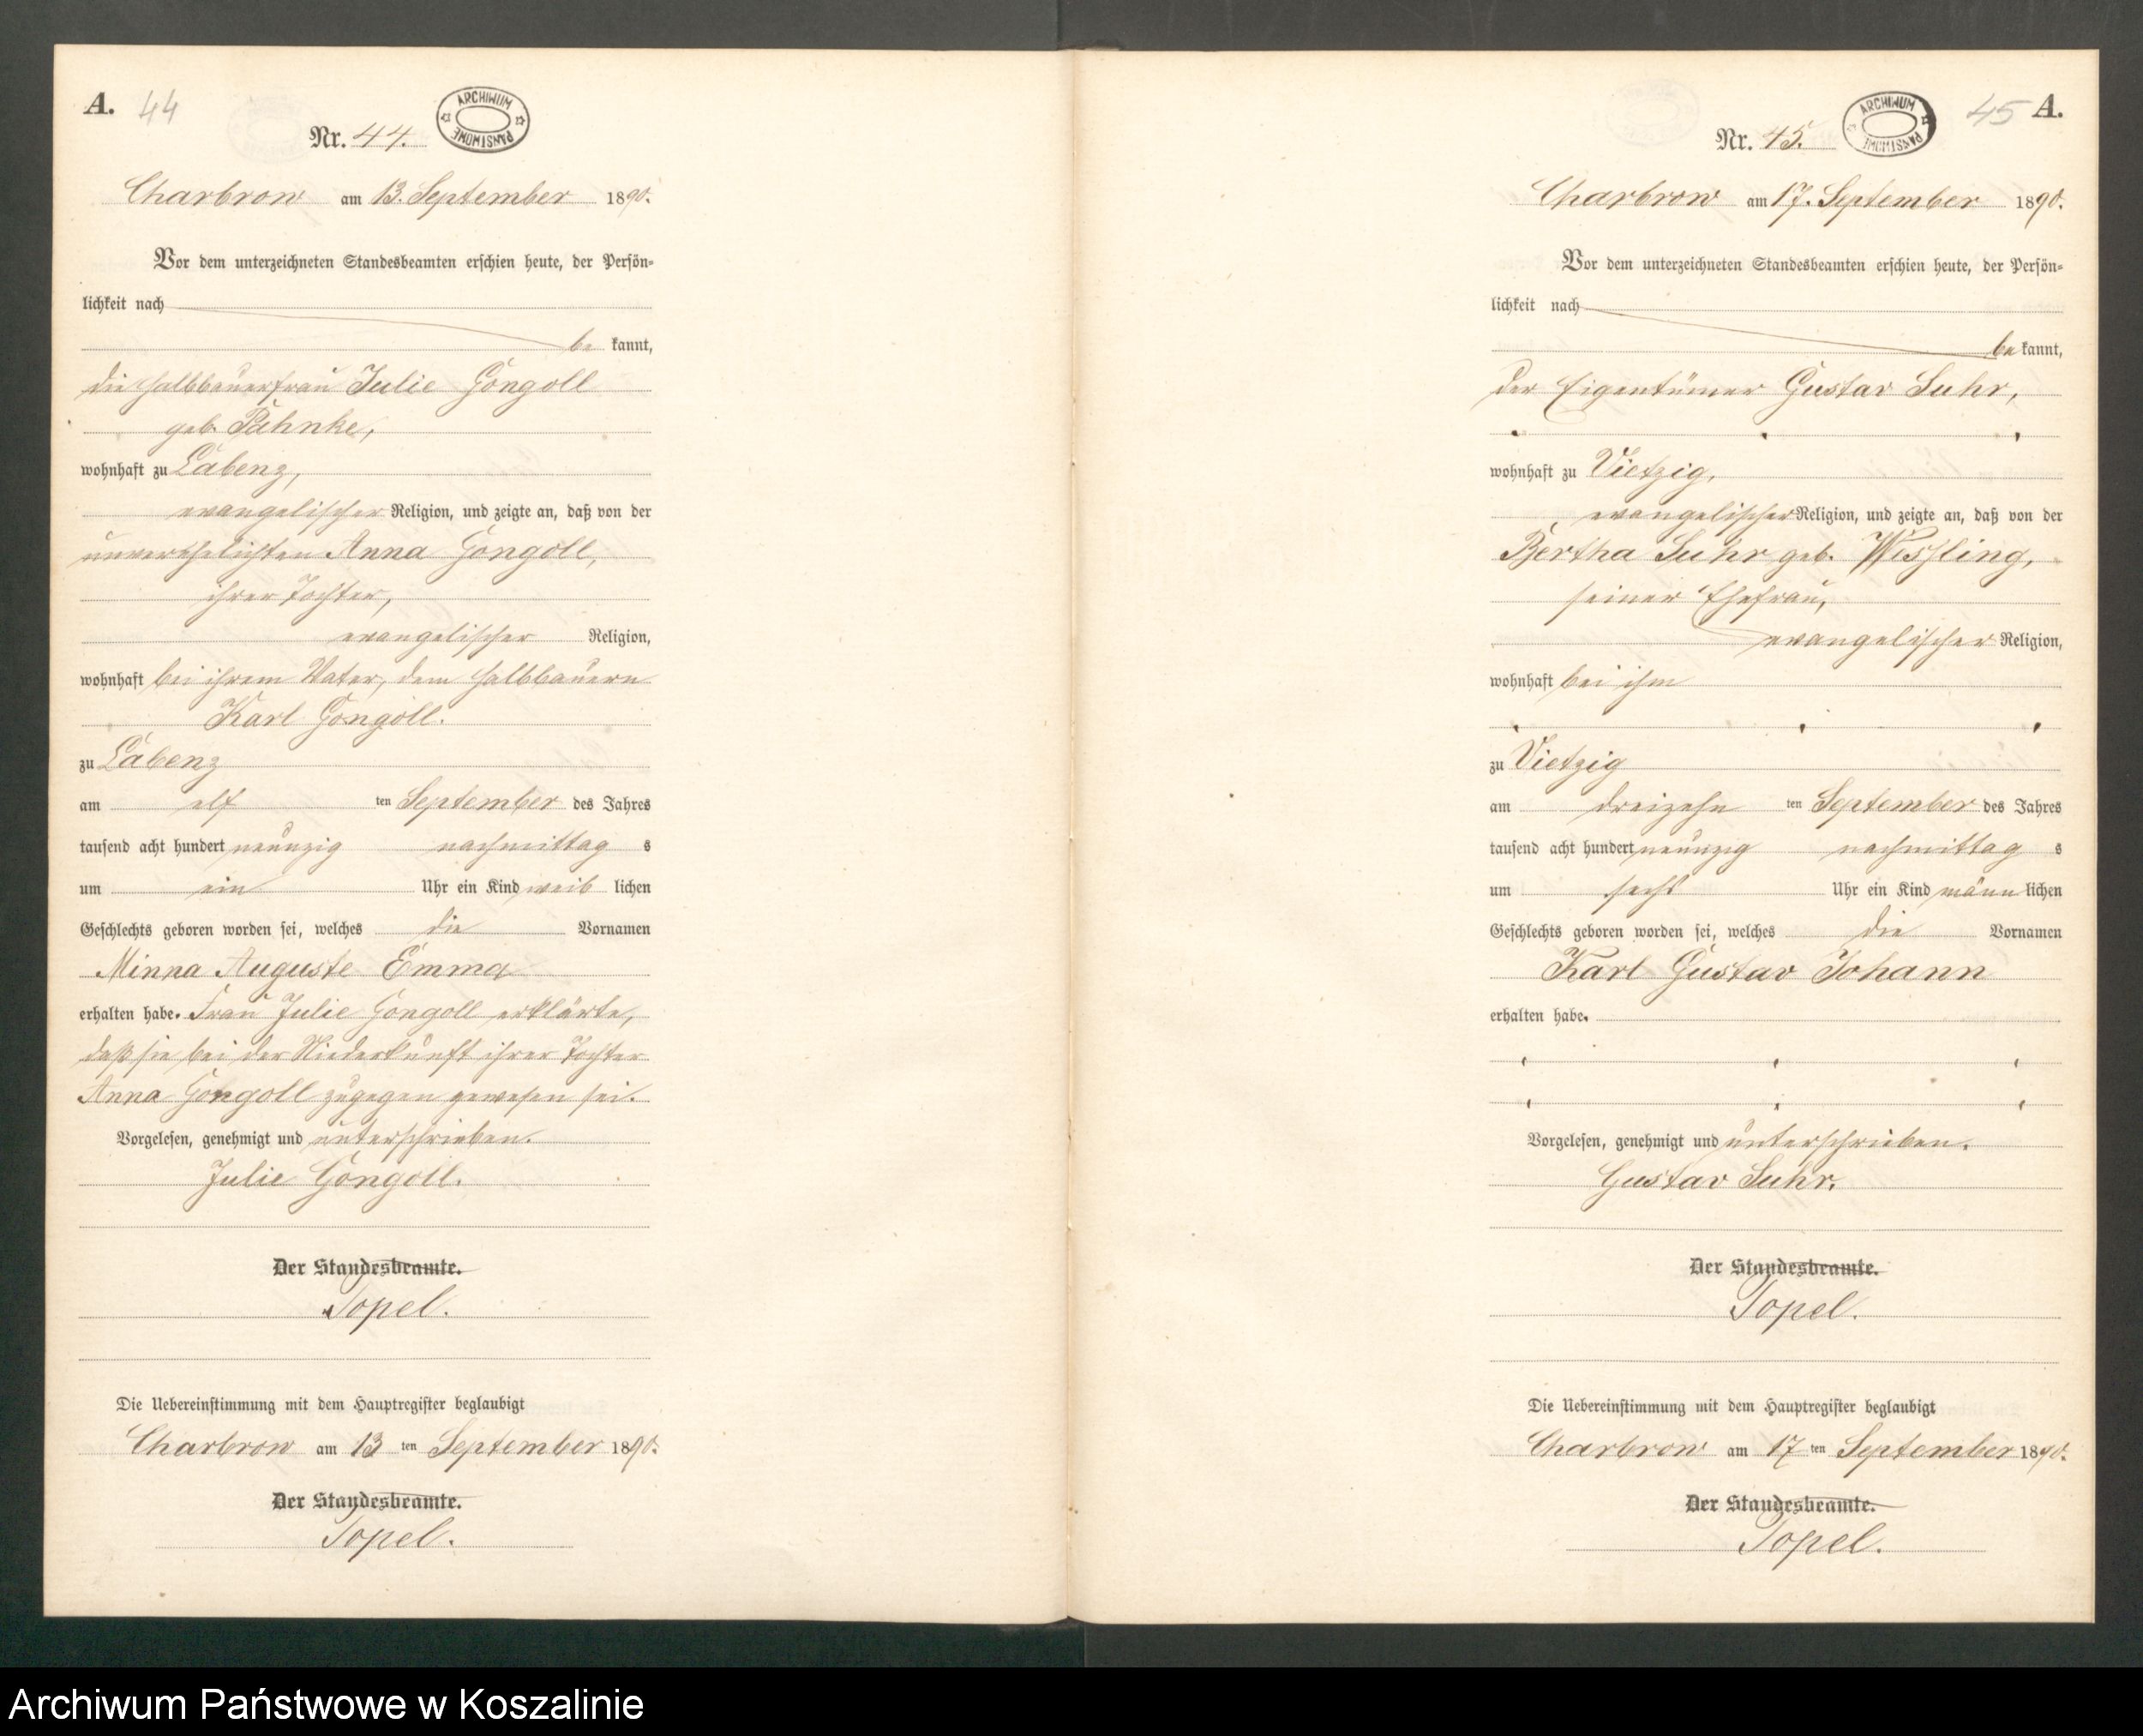 A. 44
ARCHIWUM PAŃSTWOWE
Nr. 44.
Charbrow am 13. September 1890.
Vor dem unterzeichneten Standesbeamten erschien heute, der Persön-
lichkeit nach
be kannt,
die Halbbauerfrau Julie Gongoll
geb. Pähnke,
wohnhaft zu Labenz,
evangelischer Religion, und zeigte an, daß von der
unverehelichten Anna Gongoll,
ihrer Tochter,
evangelischer Religion,
wohnhaft bei ihrem Vater, dem Halbbauern
Karl Gongoll.
zu Labenz
am elf ten September des Jahres
tausend acht hundert neunzig nachmittag s
um ein Uhr ein Kind weib lichen
Geschlechts geboren worden sei, welches die Vornamen
Minna Auguste Emma
erhalten habe. Frau Julie Gongoll erklärte,
daß sie bei der Niederkunft ihrer Tochter
Anna Gongoll zugegen gewesen sei.
Vorgelesen, genehmigt und unterschrieben.
Julie Gongoll.
Der Standesbeamte.
Topel.
Die Uebereinstimmung mit dem Hauptregister beglaubigt
Charbrow am 13 ten September 1890.
Der Standesbeamte.
Topel.
45 A.
ARCHIWUM PAŃSTWOWE
Nr. 45.
Charbrow am 17. September 1890.
Vor dem unterzeichneten Standesbeamten erschien heute, der Persön-
lichkeit nach
be kannt,
der Eigentümer Gustav Suhr,
wohnhaft zu Vietzig,
evangelischer Religion, und zeigte an, daß von der
Bertha Suhr geb. Wißling,
seiner Ehefrau,
evangelischer Religion,
wohnhaft bei ihm
zu Vietzig
am dreizehn ten September des Jahres
tausend acht hundert neunzig nachmittag s
um sechs Uhr ein Kind männ lichen
Geschlechts geboren worden sei, welches die Vornamen
Karl Gustav Johann
erhalten habe.
Vorgelesen, genehmigt und unterschrieben.
Gustav Suhr.
Der Standesbeamte.
Topel.
Die Uebereinstimmung mit dem Hauptregister beglaubigt
Charbrow am 17 ten September 1890.
Der Standesbeamte.
Topel.
Archiwum Państwowe w Koszalinie